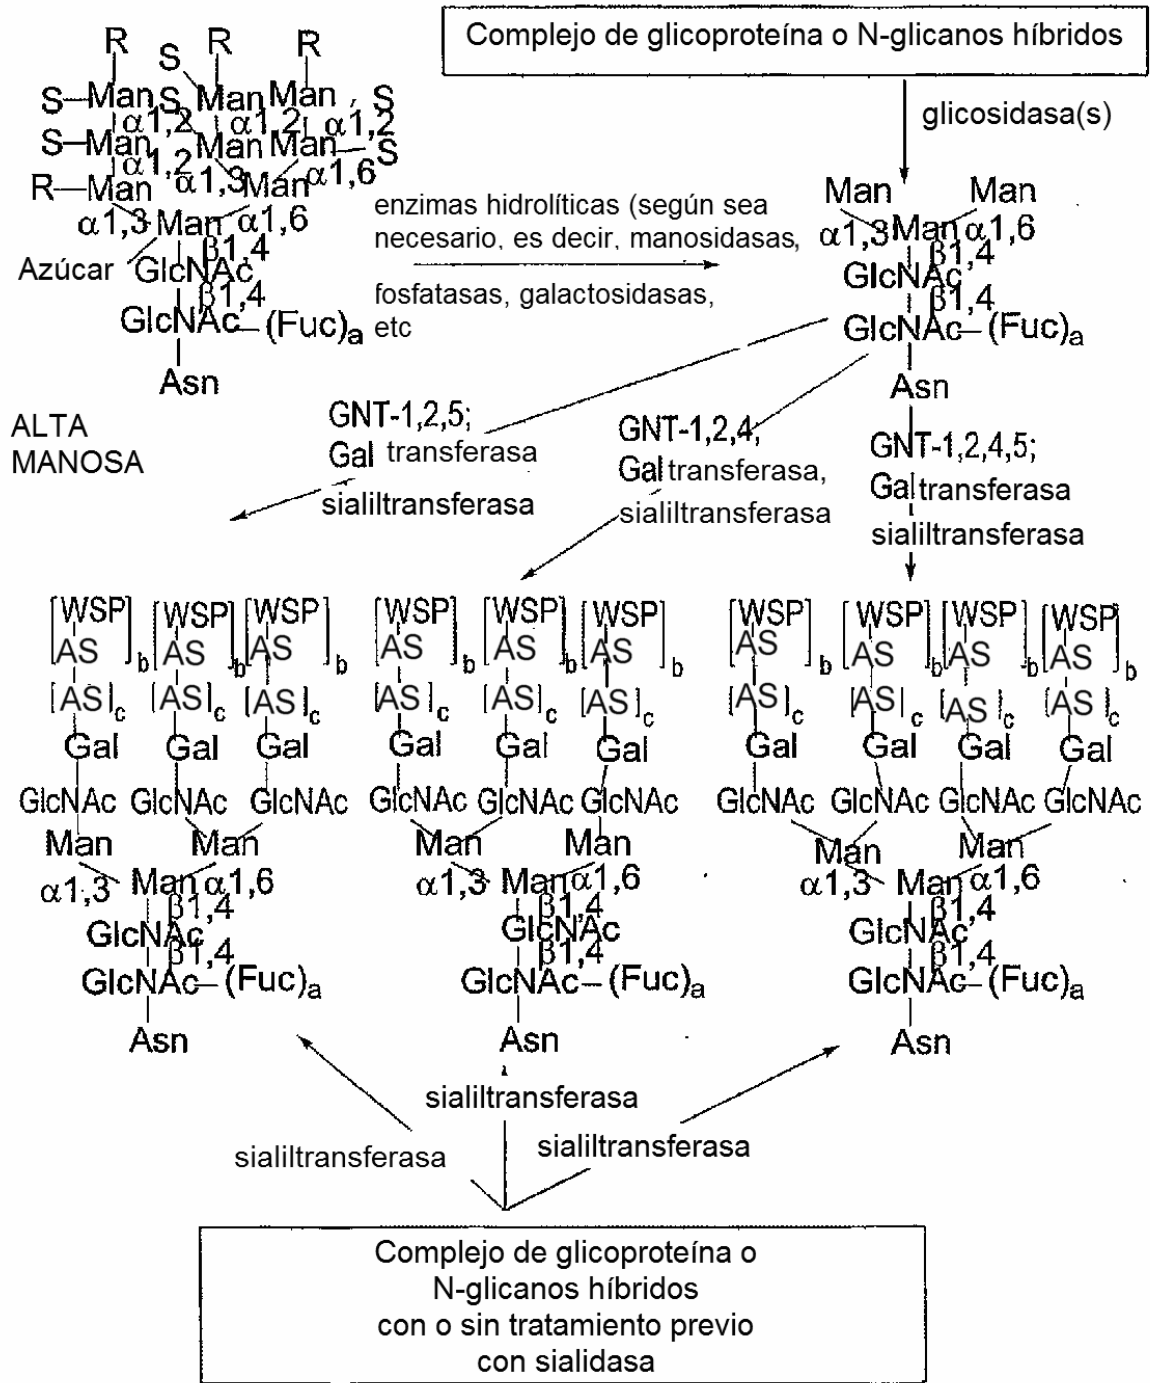 Complejo de glicoproteína o N-glicanos híbridos
glicosidasa(s)
R R R
S
S—Man S Man Man S
α1,2 α1,2 α1,2
S—Man Man Man—S
α1,2 α1,3 α1,6
R—Man Man
α1,3 Man α1,6
β1,4
Azúcar GlcNAc
β1,4
GlcNAc—(Fuc)a
Asn
ALTA
MANOSA
enzimas hidrolíticas (según sea
necesario, es decir, manosidasas,
fosfatasas, galactosidasas,
etc
Man Man
α1,3 Man α1,6
β1,4
GlcNAc
β1,4
GlcNAc—(Fuc)a
Asn
GNT-1,2,5;
Gal transferasa
sialiltransferasa
GNT-1,2,4;
Gal transferasa,
sialiltransferasa
GNT-1,2,4,5;
Gal transferasa
sialiltransferasa
[WSP [WSP [WSP
AS]b AS]b AS]b
[AS]c [AS]c [AS]c
Gal Gal Gal
GlcNAc GlcNAc GlcNAc
Man Man
α1,3 Man α1,6
β1,4
GlcNAc
β1,4
GlcNAc—(Fuc)a
Asn
[WSP [WSP [WSP
AS]b AS]b AS]b
[AS]c [AS]c [AS]c
Gal Gal Gal
GlcNAc GlcNAc GlcNAc
Man Man
α1,3 Man α1,6
β1,4
GlcNAc
β1,4
GlcNAc—(Fuc)a
Asn
[WSP [WSP [WSP [WSP
AS]b AS]b AS]b AS]b
[AS]c [AS]c [AS]c [AS]c
Gal Gal Gal Gal
GlcNAc GlcNAc GlcNAc GlcNAc
Man Man
α1,3 Man α1,6
β1,4
GlcNAc
β1,4
GlcNAc—(Fuc)a
Asn
sialiltransferasa
sialiltransferasa
sialiltransferasa
Complejo de glicoproteína o
N-glicanos híbridos
con o sin tratamiento previo
con sialidasa